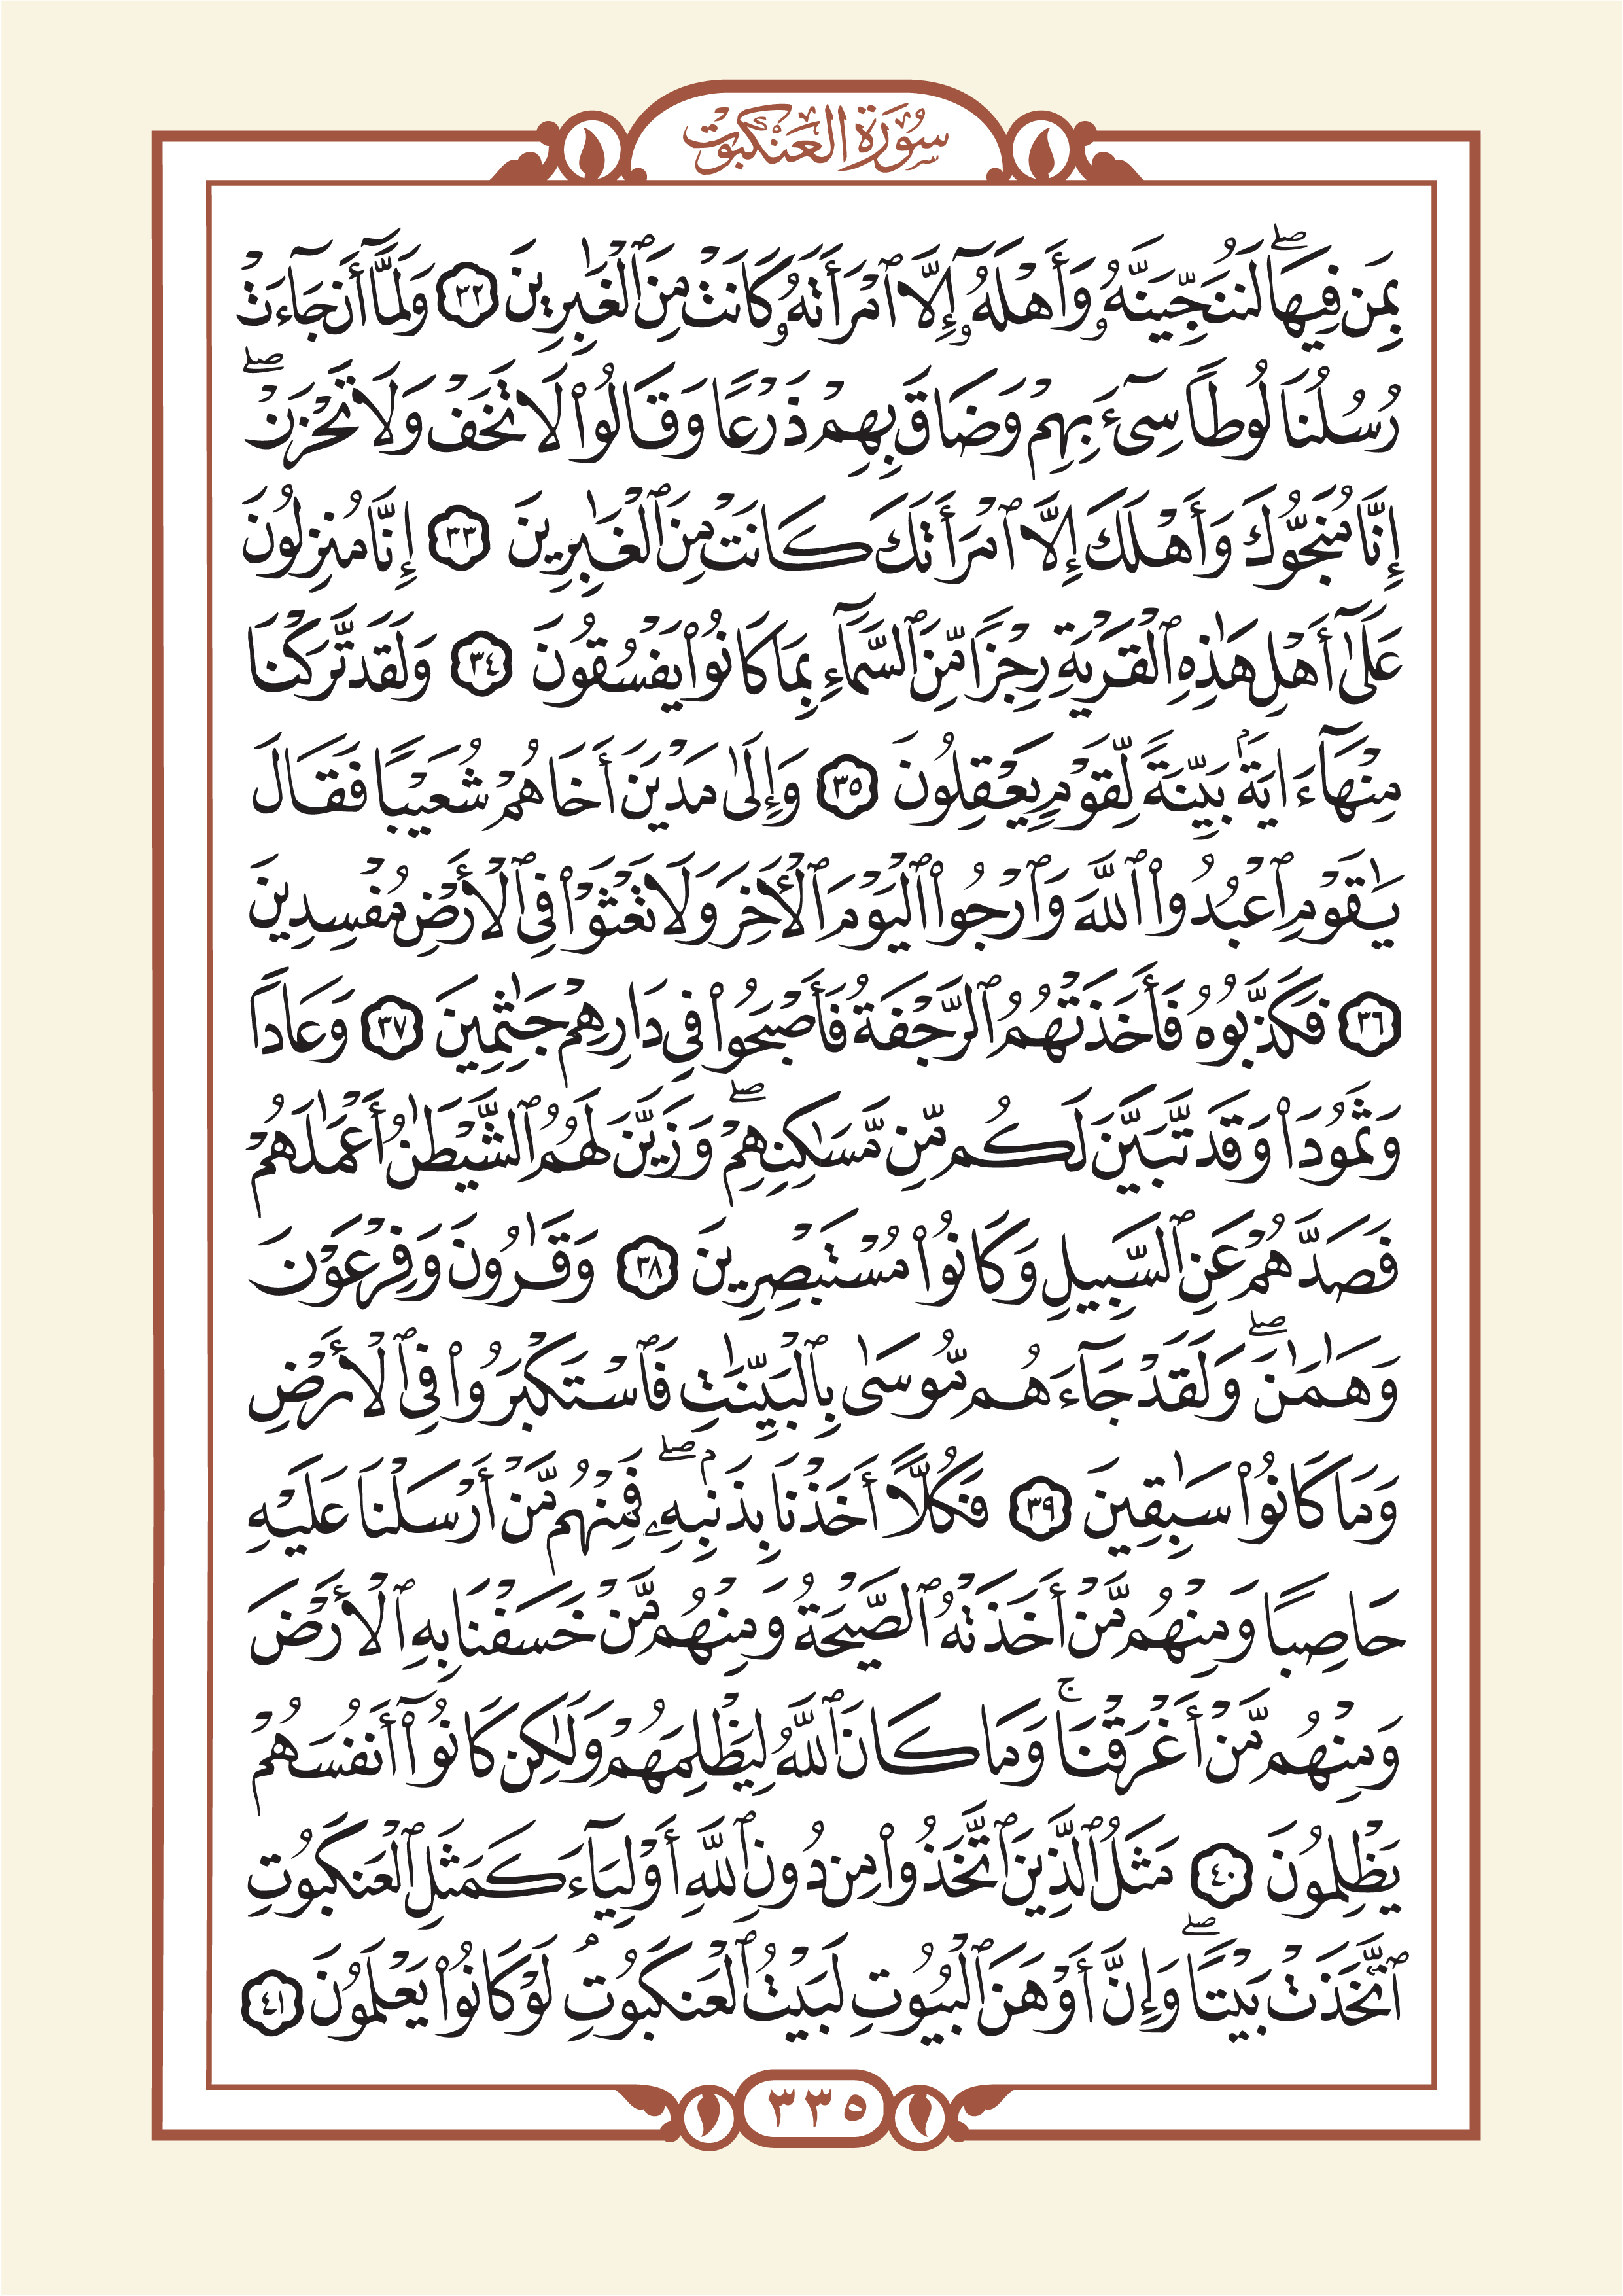 سُورَةُ العَنكَبُوت
بِمَن فِيهَاۖ لَنُنَجِّيَنَّهُۥ وَأَهۡلَهُۥٓ إِلَّا ٱمۡرَأَتَهُۥ كَانَتۡ مِنَ ٱلۡغَٰبِرِينَ ٣٢ وَلَمَّآ أَن جَآءَتۡ
رُسُلُنَا لُوطٗا سِيٓءَ بِهِمۡ وَضَاقَ بِهِمۡ ذَرۡعٗا وَقَالُواْ لَا تَخَفۡ وَلَا تَحۡزَنۡۖ
إِنَّا مُنَجُّوكَ وَأَهۡلَكَ إِلَّا ٱمۡرَأَتَكَ كَانَتۡ مِنَ ٱلۡغَٰبِرِينَ ٣٣ إِنَّا مُنزِلُونَ
عَلَىٰٓ أَهۡلِ هَٰذِهِ ٱلۡقَرۡيَةِ رِجۡزٗا مِّنَ ٱلسَّمَآءِ بِمَا كَانُواْ يَفۡسُقُونَ ٣٤ وَلَقَد تَّرَكۡنَا
مِنۡهَآ ءَايَةَۢ بَيِّنَةٗ لِّقَوۡمٖ يَعۡقِلُونَ ٣٥ وَإِلَىٰ مَدۡيَنَ أَخَاهُمۡ شُعَيۡبٗا فَقَالَ
يَٰقَوۡمِ ٱعۡبُدُواْ ٱللَّهَ وَٱرۡجُواْ ٱلۡيَوۡمَ ٱلۡأٓخِرَ وَلَا تَعۡثَوۡاْ فِي ٱلۡأَرۡضِ مُفۡسِدِينَ
٣٦ فَكَذَّبُوهُ فَأَخَذَتۡهُمُ ٱلرَّجۡفَةُ فَأَصۡبَحُواْ فِي دَارِهِمۡ جَٰثِمِينَ ٣٧ وَعَادٗا
وَثَمُودَاْ وَقَد تَّبَيَّنَ لَكُم مِّن مَّسَٰكِنِهِمۡۖ وَزَيَّنَ لَهُمُ ٱلشَّيۡطَٰنُ أَعۡمَٰلَهُمۡ
فَصَدَّهُمۡ عَنِ ٱلسَّبِيلِ وَكَانُواْ مُسۡتَبۡصِرِينَ ٣٨ وَقَٰرُونَ وَفِرۡعَوۡنَ
وَهَٰمَٰنَۖ وَلَقَدۡ جَآءَهُم مُّوسَىٰ بِٱلۡبَيِّنَٰتِ فَٱسۡتَكۡبَرُواْ فِي ٱلۡأَرۡضِ
وَمَا كَانُواْ سَٰبِقِينَ ٣٩ فَكُلًّا أَخَذۡنَا بِذَنۢبِهِۦۖ فَمِنۡهُم مَّنۡ أَرۡسَلۡنَا عَلَيۡهِ
حَاصِبٗا وَمِنۡهُم مَّنۡ أَخَذَتۡهُ ٱلصَّيۡحَةُ وَمِنۡهُم مَّنۡ خَسَفۡنَا بِهِ ٱلۡأَرۡضَ
وَمِنۡهُم مَّنۡ أَغۡرَقۡنَاۚ وَمَا كَانَ ٱللَّهُ لِيَظۡلِمَهُمۡ وَلَٰكِن كَانُوٓاْ أَنفُسَهُمۡ
يَظۡلِمُونَ ٤٠ مَثَلُ ٱلَّذِينَ ٱتَّخَذُواْ مِن دُونِ ٱللَّهِ أَوۡلِيَآءَ كَمَثَلِ ٱلۡعَنكَبُوتِ
ٱتَّخَذَتۡ بَيۡتٗاۖ وَإِنَّ أَوۡهَنَ ٱلۡبُيُوتِ لَبَيۡتُ ٱلۡعَنكَبُوتِۚ لَوۡ كَانُواْ يَعۡلَمُونَ ٤١
٣٣٥